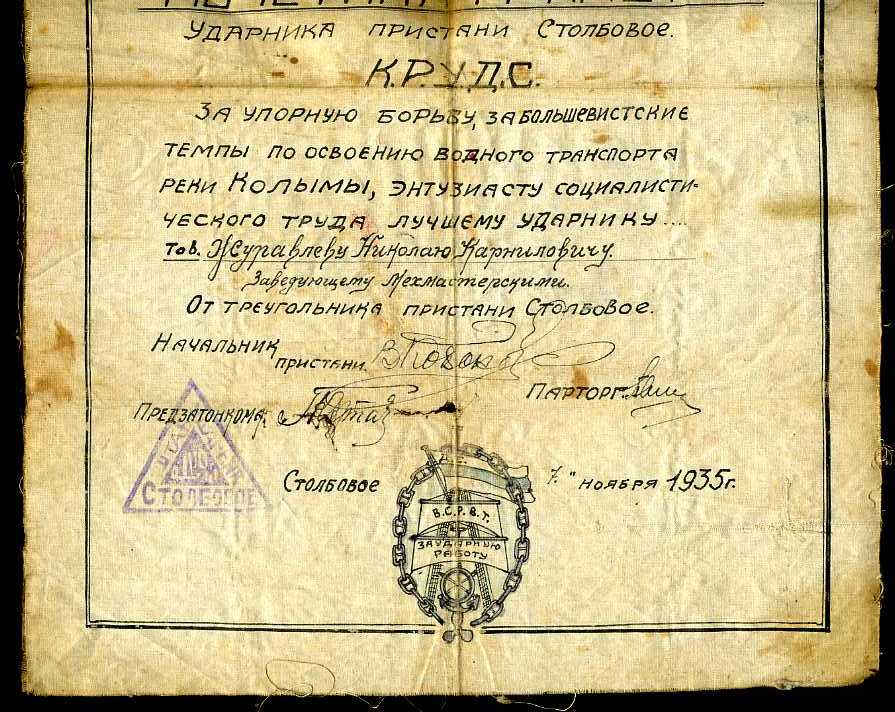 Ударника пристани Столбовое.
К.Р.У.Д.С.
За упорную борьбу, за большевистские
темпы по освоению водного транспорта
реки Колымы, энтузиасту социалисти-
ческого труда лучшему ударнику....
тов. Журавлеву Николаю Карниловичу.
Заведующему Мехмастерскими.
От треугольника пристани Столбовое.
Начальник
пристани
Парторг
Предзатонкома
Столбовое
Столбовое
7." ноября 1935г.
В.С.Р.В.Т.
За ударную
работу